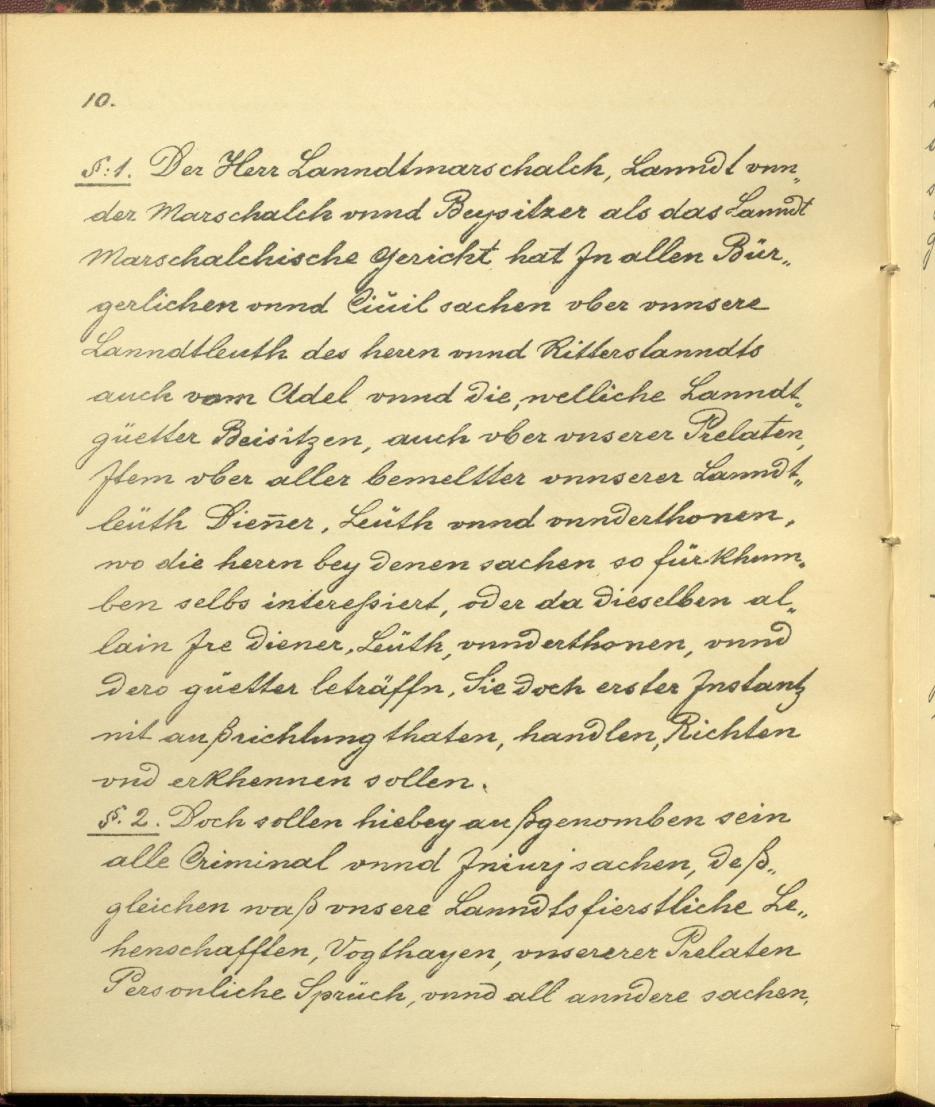 10.
§: 1. Der Herr Lanndtmarschalch, Lanndt vnn„
der Marschalch vnnd Beysitzer als das Lanndt
Marschalchische Gericht hat Jn allen Bür„
gerlichen vnnd Ciuil sachen vber vnnsere
Lanndtleuth des herrn vnnd Ritterstanndts
auch vom Adel vnnd die, welliche Lanndt„
güetter Beisitzen, auch vber vnserer Prelaten,
Jtem vber aller bemeltter vnnserer Lanndt„
leüth Dieñer, Leüth vnnd vnnderthonen,
wo die herrn bey denen sachen so fürkhum„
ben selbs interessiert, oder da dieselben al„
lain Jre Diener, Leüth, vnnderthonen, vnnd
dero güetter beträffn, Sie doch erster Jnstantz
nit außrichtung thaten, handlen, Richten
vnd erkhennen sollen.
§. 2. Doch sollen hiebey außgenomben sein
alle Criminal vnnd Jniurj sachen, deß„
gleichen waß vnsere Lanndtsfierstliche Le„
henschafften, Vogthayen, vnsererer Prelaten
Personliche Sprüch, vnnd all anndere sachen,